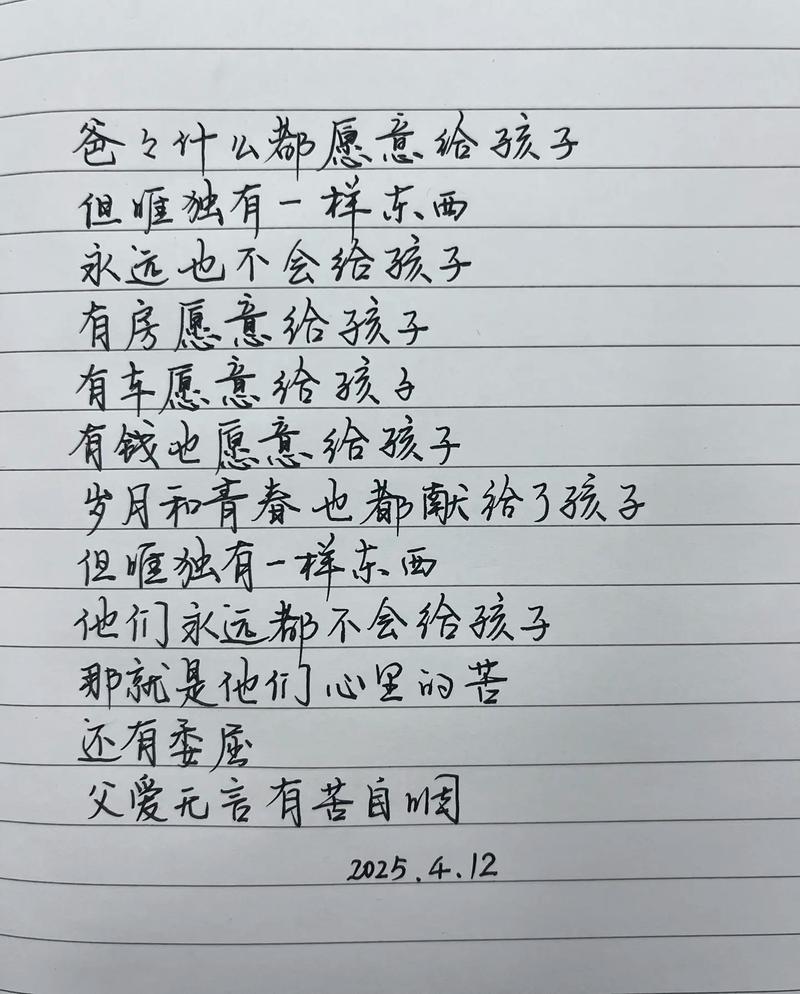 爸々什么都愿意给孩子
但唯独有一样东西
永远也不会给孩子
有房愿意给孩子
有车愿意给孩子
有钱也愿意给孩子
岁月和青春也都献给了孩子
但唯独有一样东西
他们永远都不会给孩子
那就是他们心里的苦
还有委屈
父爱无言有苦自咽
2025.4.12